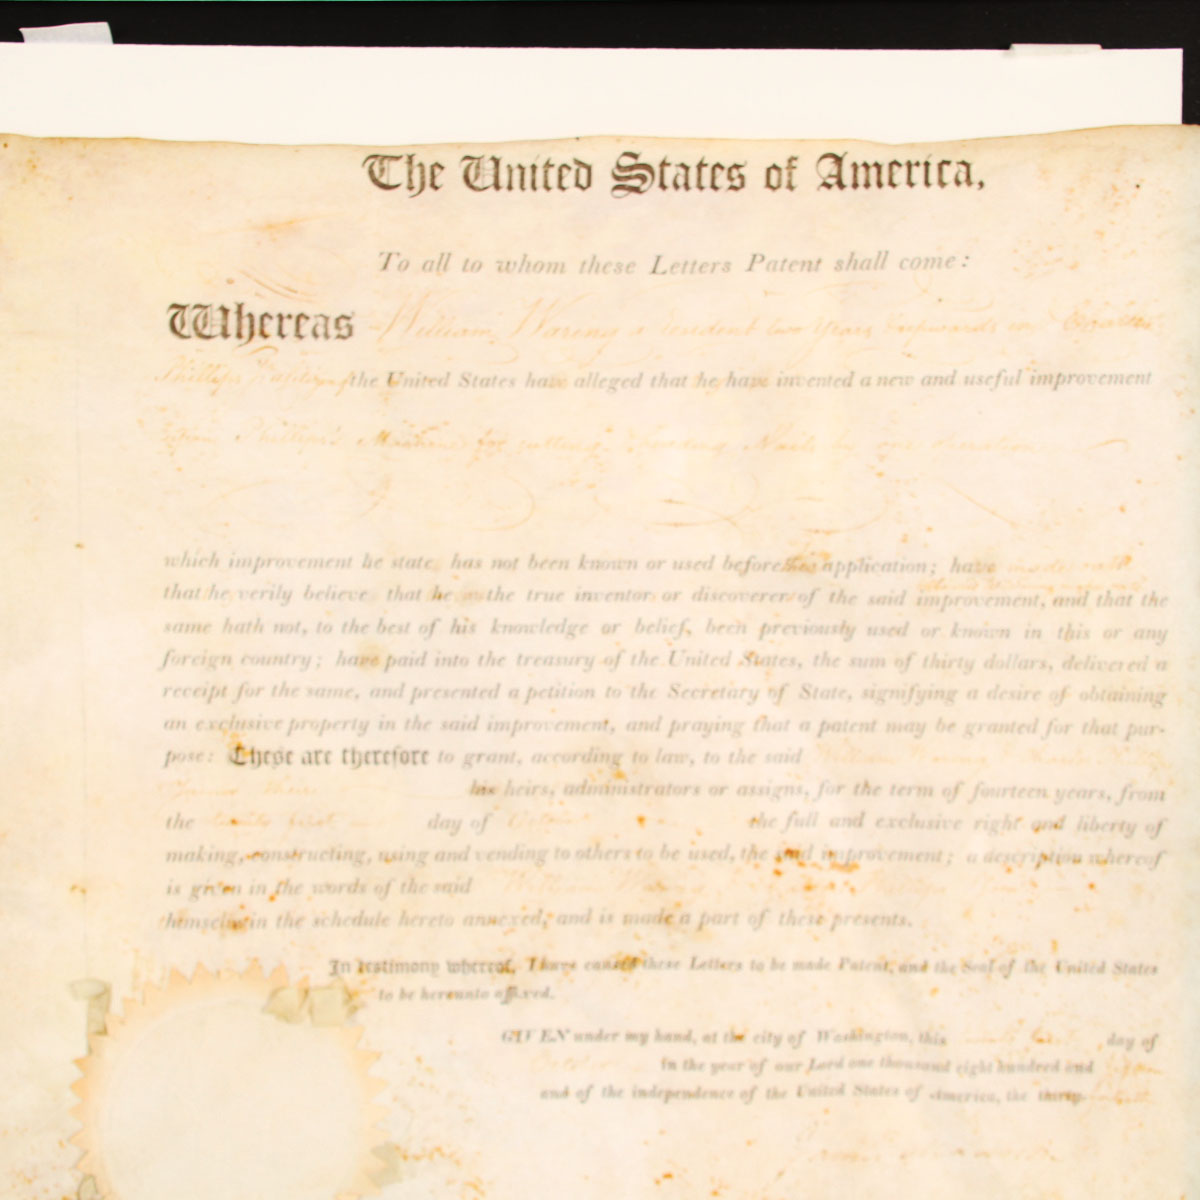 The United States of America,
To all to whom these Letters Patent shall come:
Whereas William Waring a resident two years & upwards in
the United States have alleged that he have invented a new and useful improvement
Phillips's Machine for cutting heading Nails by one operation
which improvement he state has not been known or used before his application; have made oath
that he verily believe that he is the true inventor or discoverer of the said improvement, and that the
same hath not, to the best of his knowledge or belief, been previously used or known in this or any
foreign country; have paid into the treasury of the United States, the sum of thirty dollars, delivered a
receipt for the same, and presented a petition to the Secretary of State, signifying a desire of obtaining
an exclusive property in the said improvement, and praying that a patent may be granted for that pur-
pose: These are therefore to grant, according to law, to the said William Waring
his heirs, administrators or assigns, for the term of fourteen years, from
the twenty first day of October the full and exclusive right and liberty of
making, constructing, using and vending to others to be used, the said improvement; a description whereof
is given in the words of the said William Waring
himself in the schedule hereto annexed, and is made a part of these presents.
In testimony whereof, I have caused these Letters to be made Patent, and the Seal of the United States
to be hereunto affixed.
GIVEN under my hand, at the city of Washington, this twenty first day of
October in the year of our Lord one thousand eight hundred and
and of the independence of the United States of America, the thirty-